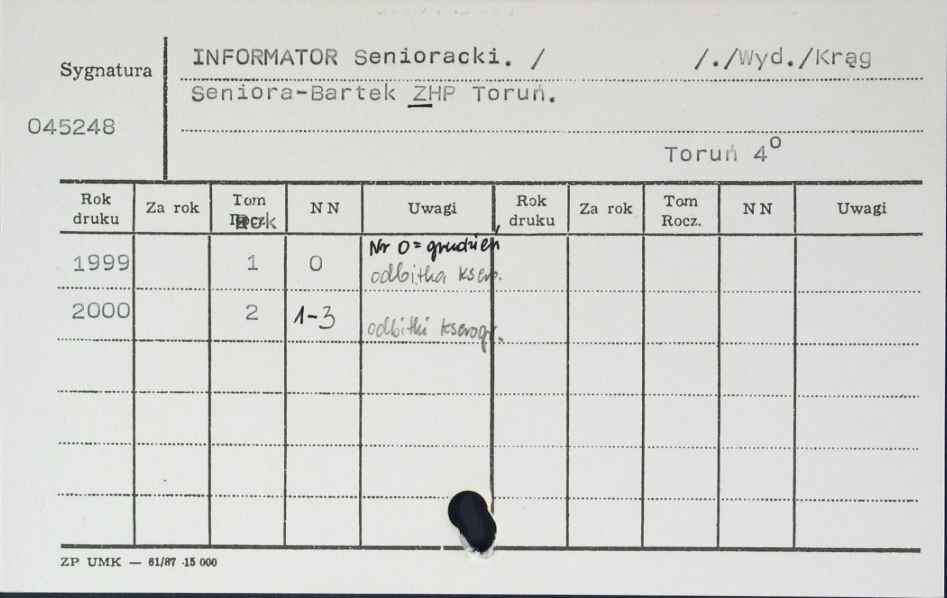 INFORMATOR Senioracki. / /./Wyd./Krąg
Sygnatura
Seniora-Bartek ZHP Toruń.
045248
Toruń 4°
Rok druku Za rok Tom Rocz. Rok NN Uwagi Rok druku Za rok Tom Rocz. NN Uwagi
Nr 0 = grudzień
1999 1 0 odbitka kser.
2000 2 1-3 odbitki kserogr.
ZP UMK — 61/87 ·15 000